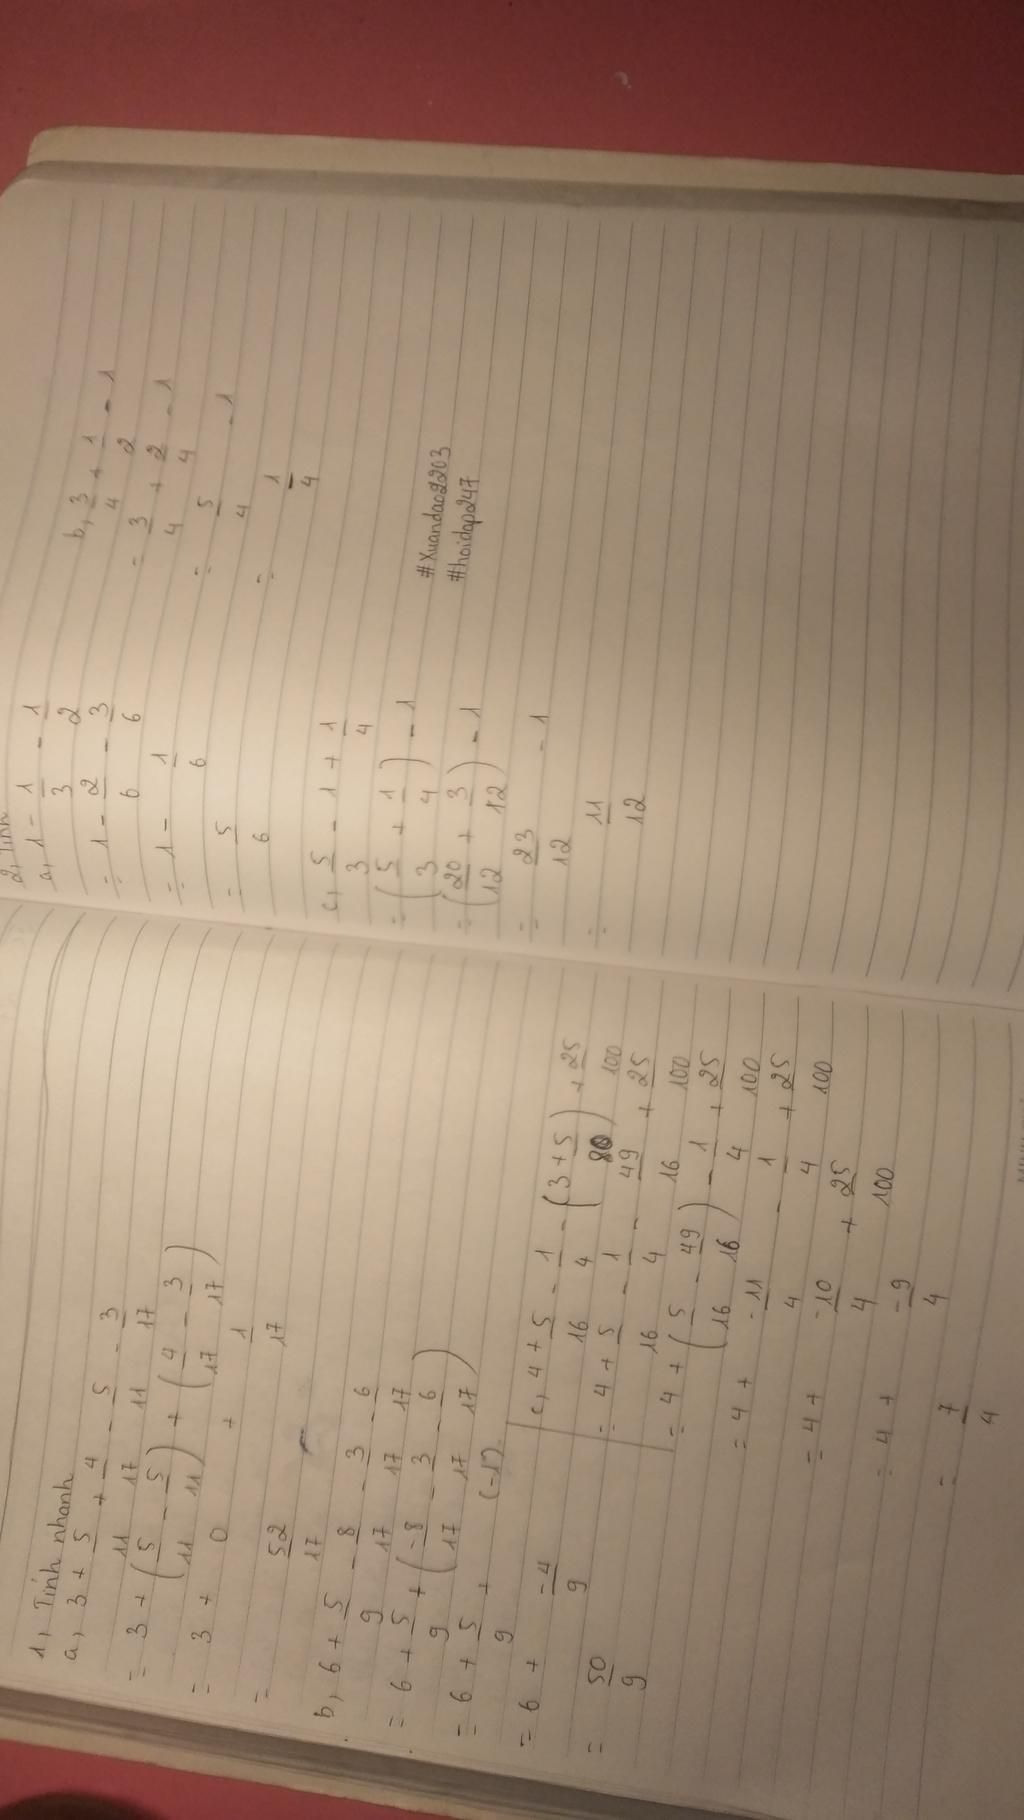 1, Tính nhanh
a, 3 + 5/11 + 4/17 - 5/11 - 3/17
= 3 + (5/11 - 5/11) + (4/17 - 3/17)
= 3 + 0 + 1/17
= 52/17
b, 6 + 5/9 - 8/17 - 3/17 - 6/17
= 6 + 5/9 + (-8/17 - 3/17 - 6/17)
= 6 + 5/9 + (-1)
= 6 + -4/9
= 50/9
c, 4 + 5/16 - 1/4 - (3+5/80) + 25/100
= 4 + 5/16 - 1/4 - 49/16 + 25/100
= 4 + (5/16 - 49/16) - 1/4 + 25/100
= 4 + -11/4 - 1/4 + 25/100
= 4 + -10/4 + 25/100
= 4 + -9/4
= 7/4
2, Tính
a, 1 - 1/3 - 1/2
= 1 - 2/6 - 3/6
= 1 - 1/6
= 5/6
b, 3/4 + 1/2 - 1
= 3/4 + 2/4 - 1
= 5/4 - 1
= 1/4
c, 5/3 - 1 + 1/4
= (5/3 + 1/4) - 1
= (20/12 + 3/12) - 1
= 23/12 - 1
= 11/12
#Xuandao2203
#hoidap247